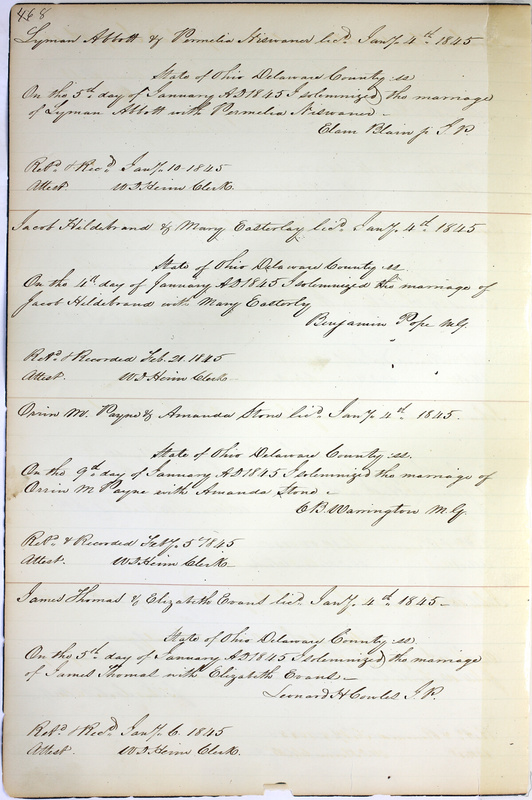 468
Lyman Abbott & Permelia Niswaner licd. Jany. 4th 1845
State of Ohio Delaware County ss
On the 5th day of January AD 1845 I solemnized the marriage
of Lyman Abbott with Permelia Niswaner –
Elam Blain jr J.P.
Retd. & Recd. Jany. 10 1845
Attest. W I Heim Clerk
Jacob Hildebrand & Mary Easterley licd. Jany. 4th 1845
State of Ohio Delaware County ss.
On the 4th day of January AD 1845 I solemnized the marriage of
Jacob Hildebrand with Mary Easterley
Benjamin Pope M.G.
Retd. & Recorded Feb. 21. 1845
Attest. W I Heim Clerk
Orrin M. Payne & Amanda Stone licd. Jany. 4th 1845.
State of Ohio Delaware County: ss.
On the 9th day of January AD 1845 I solemnized the marriage of
Orrin M Payne with Amanda Stone –
C B Warrington M.G.
Retd. & Recorded Feby. 5 1845
Attest. W I Heim Clerk
James Thomas & Elizabeth Evans licd. Jany. 4th 1845 –
State of Ohio Delaware County ss
On the 5th day of January AD 1845 I solemnized the marriage
of James Thomas with Elizabeth Evans –
Leonard H Cowles J.P.
Retd. & Recd. Jany. 6. 1845
Attest. W I Heim Clerk.